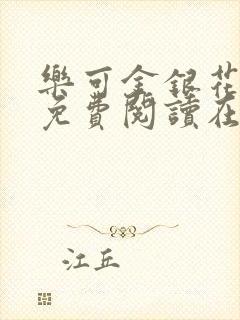 樂可金銀花
免費閱讀在
江丘